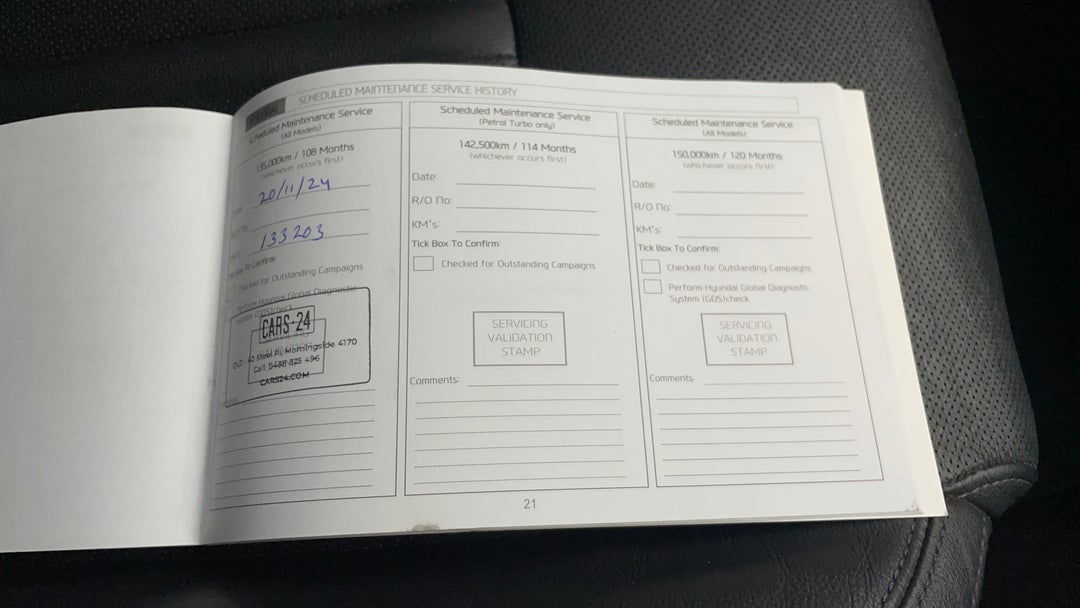 SCHEDULED MAINTENANCE SERVICE HISTORY
Scheduled Maintenance Service
(All Models)
135,000km / 108 Months
(whichever occurs first)
20/11/24
133203
Tick Box To Confirm:
Checked for Outstanding Campaigns
Perform Hyundai Global Diagnostic
System (GDS)check
CARS·24
QLD - 40 Steel Pl, Morningside 4170
Call 0488 825 496
CARS24.COM
Scheduled Maintenance Service
(Petrol Turbo only)
142,500km / 114 Months
(whichever occurs first)
Date:
R/O No:
KM's:
Tick Box To Confirm:
Checked for Outstanding Campaigns
SERVICING
VALIDATION
STAMP
Comments:
Scheduled Maintenance Service
(All Models)
150,000km / 120 Months
(whichever occurs first)
Date:
R/O No:
KM's:
Tick Box To Confirm:
Checked for Outstanding Campaigns
Perform Hyundai Global Diagnostic
System (GDS)check
SERVICING
VALIDATION
STAMP
Comments:
21